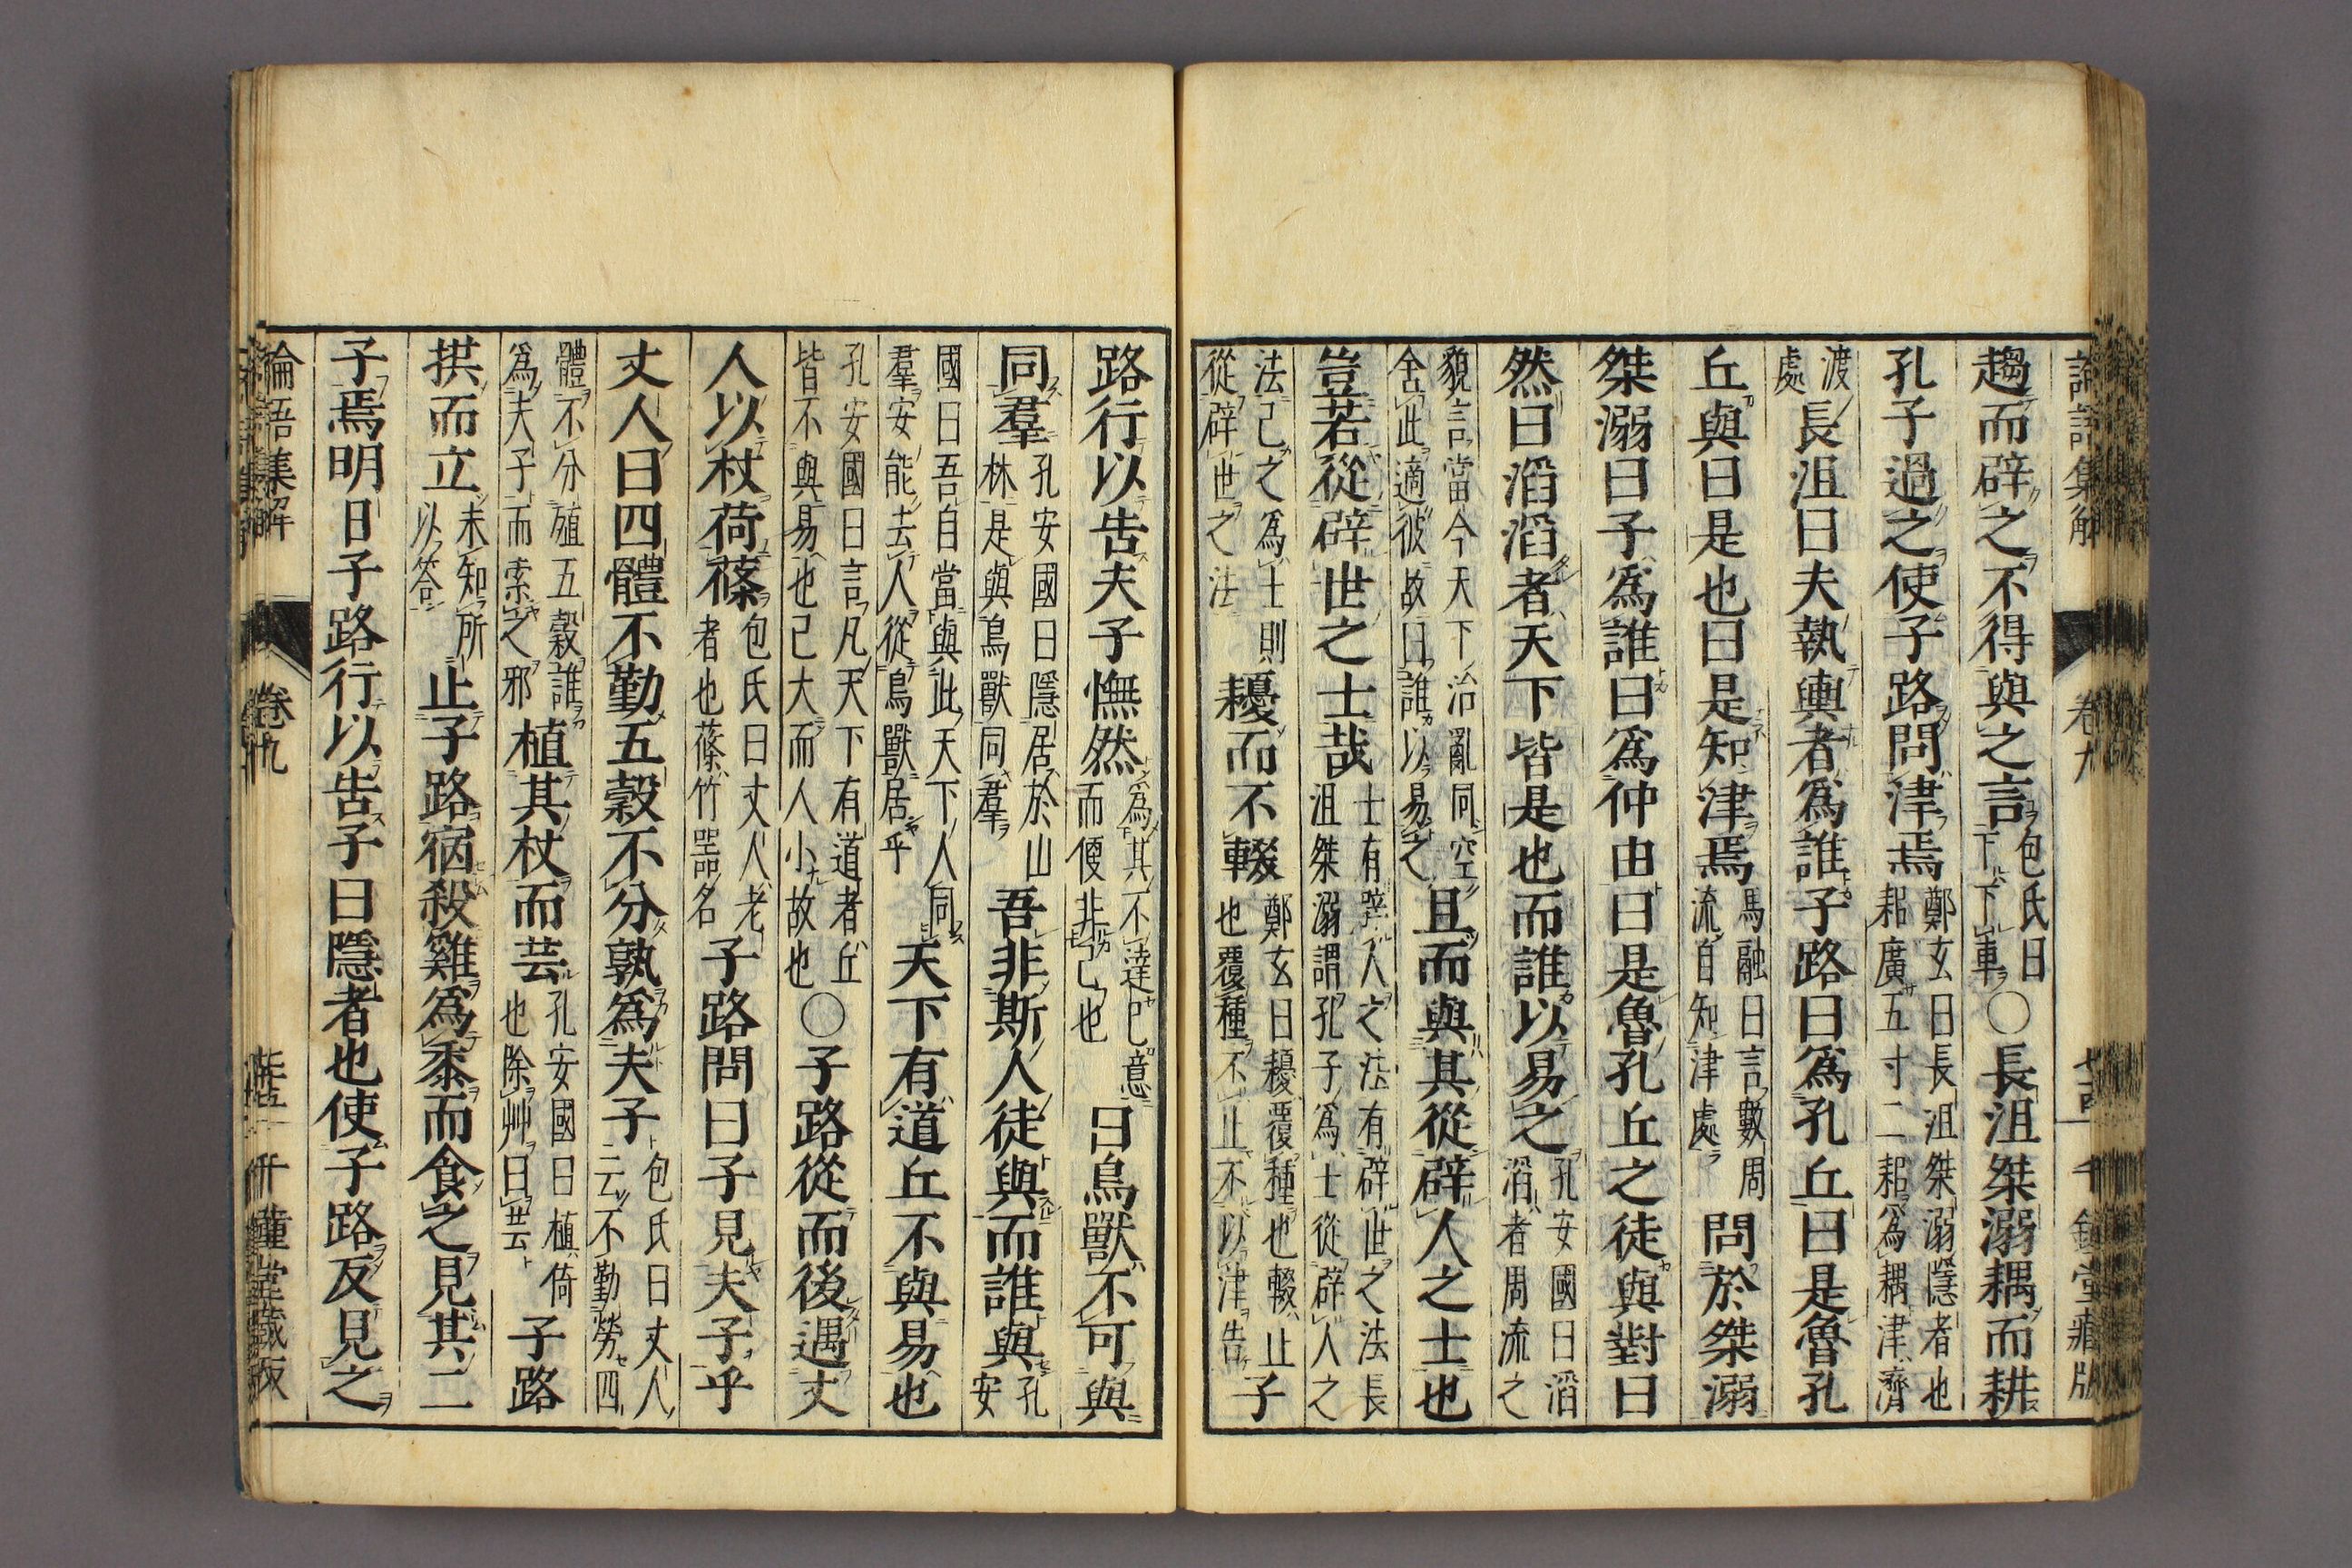 論語集解 卷九 千鍾堂藏版
趨而辟之不得與之言包氏曰下下車○長沮桀溺耦而耕
孔子過之使子路問津焉鄭玄曰長沮桀溺隱者也耜廣五寸二耜爲耦津濟
渡處長沮曰夫執輿者爲誰子路曰爲孔丘曰是魯孔
丘與曰是也曰是知津焉馬融曰言數周流自知津處問於桀溺
桀溺曰子爲誰曰爲仲由曰是魯孔丘之徒與對曰
然曰滔滔者天下皆是也而誰以易之孔安國曰滔滔者周流之
貌言當今天下治亂同空舍此適彼故曰誰以易之且而與其從辟人之士也
豈若從辟世之士哉士有辟人之法有辟世之法長沮桀溺謂孔子爲士從辟人之
法己之爲士則從辟世之法耰而不輟鄭玄曰耰覆種也輟止也覆種不止不以津告子
路行以告夫子憮然爲其不達己意而便非己也曰鳥獸不可與
同羣孔安國曰隱居於山林是與鳥獸同羣吾非斯人徒與而誰與孔安
國曰吾自當與此天下人同羣安能去人從鳥獸居乎天下有道丘不與易也
孔安國曰言凡天下有道者丘皆不與易也己大而人小故也○子路從而後遇丈
人以杖荷蓧包氏曰丈人老者也蓧竹器名子路問曰子見夫子乎
丈人曰四體不勤五穀不分孰爲夫子包氏曰丈人云不勤勞四
體不分殖五穀誰爲夫子而索之邪植其杖而芸孔安國曰植倚也除艸曰芸子路
拱而立未知所以答止子路宿殺雞爲黍而食之見其二
子焉明日子路行以告子曰隱者也使子路反見之
論語集解 卷九 千鍾堂藏版